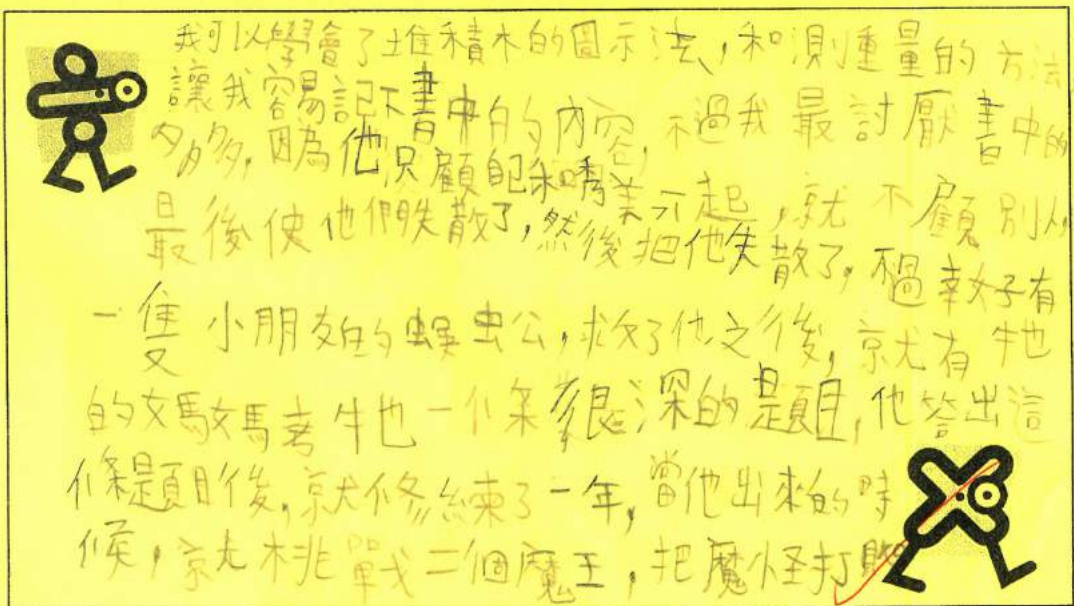 我可以學會了堆積木的圖示法,和測重量的方法
讓我容易記下書中的內容,不過我最討厭書中的
多多,因為他只顧自己和秀美一起,就不顧別人,
最後使他們失散了,然後把他失散了,不過幸好有
一隻小朋友的蜈蚣公,救了他之後,就有牠
的媽媽考牠一條很深的題目,他答出這
條題目後,就修練了一年,當他出來的時
候,就挑戰二個魔王,把魔怪打敗